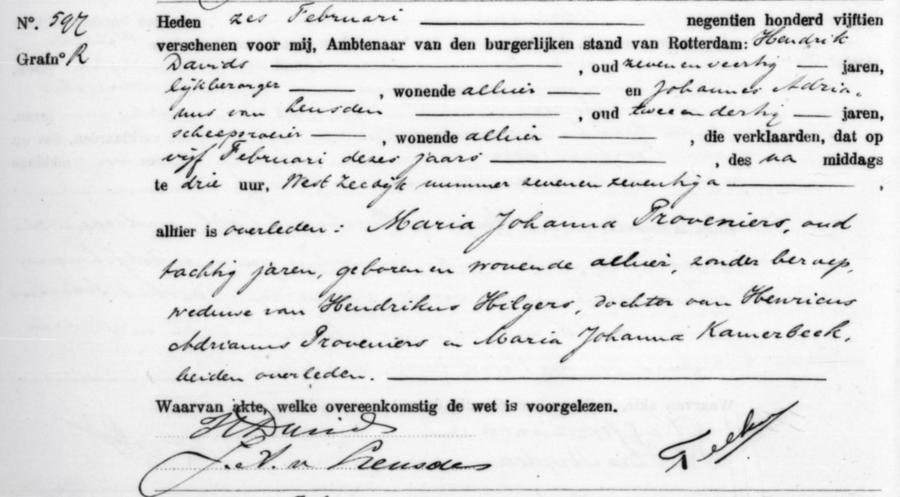 Nº. 597 Heden zes Februari negentien honderd vijftien
verschenen voor mij, Ambtenaar van den burgerlijken stand van Rotterdam: Hendrik
Grafnº R Davids, oud zevenenveertig jaren,
lijkbezorger, wonende alhier en Johannes Adria-
nus van Heusden, oud tweeendertig jaren,
scheepsroeier, wonende alhier, die verklaarden, dat op
vijf Februari dezes jaars, des na middags
te drie uur, West Zeedijk nummer zevenenzeventig a,
alhier is overleden: Maria Johanna Proveniers, oud
tachtig jaren, geboren en wonende alhier, zonder beroep,
weduwe van Hendrikus Hilgers, dochter van Henricus
Adrianus Proveniers en Maria Johanna Kamerbeek,
beiden overleden.
Waarvan akte, welke overeenkomstig de wet is voorgelezen.
H Davids
J. A. v Heusden